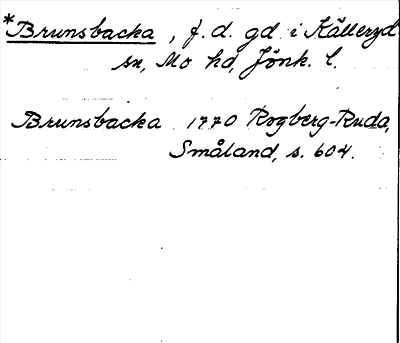 *Brunsbacka, f.d. gd i Källeryd
sn, Mo hd, Jönk. l.
Brunsbacka 1770 Rogberg-Ruda,
Småland, s. 604.